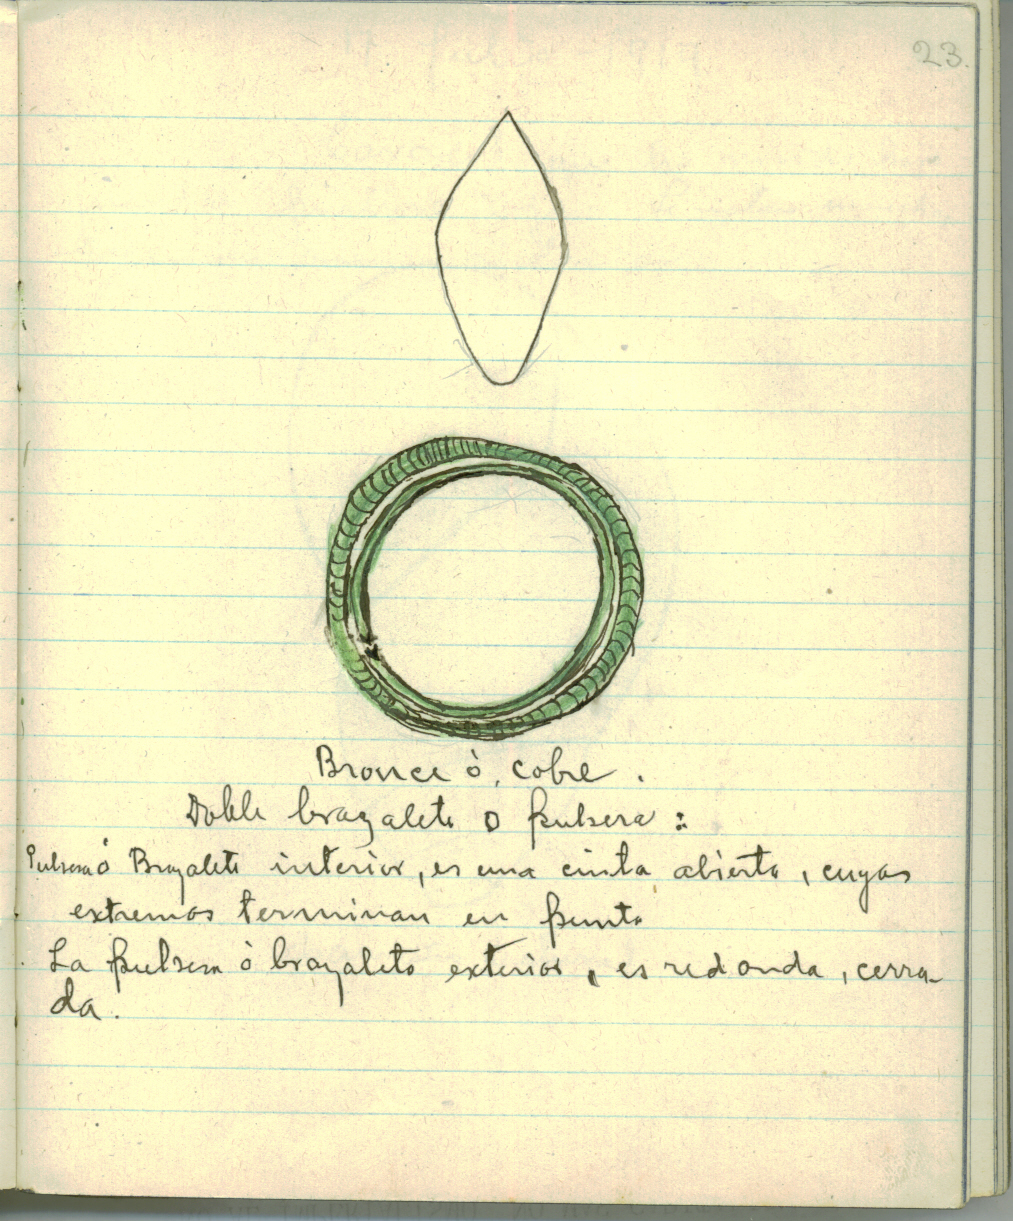 23.
Bronce ò cobre.
Doble brazalete o pulsera:
Pulsera ó Brazalete interior, es una cinta abierta, cuyos
extremos terminan en punta
La pulsera ò brazalete exterior, es redonda, cerra-
da.